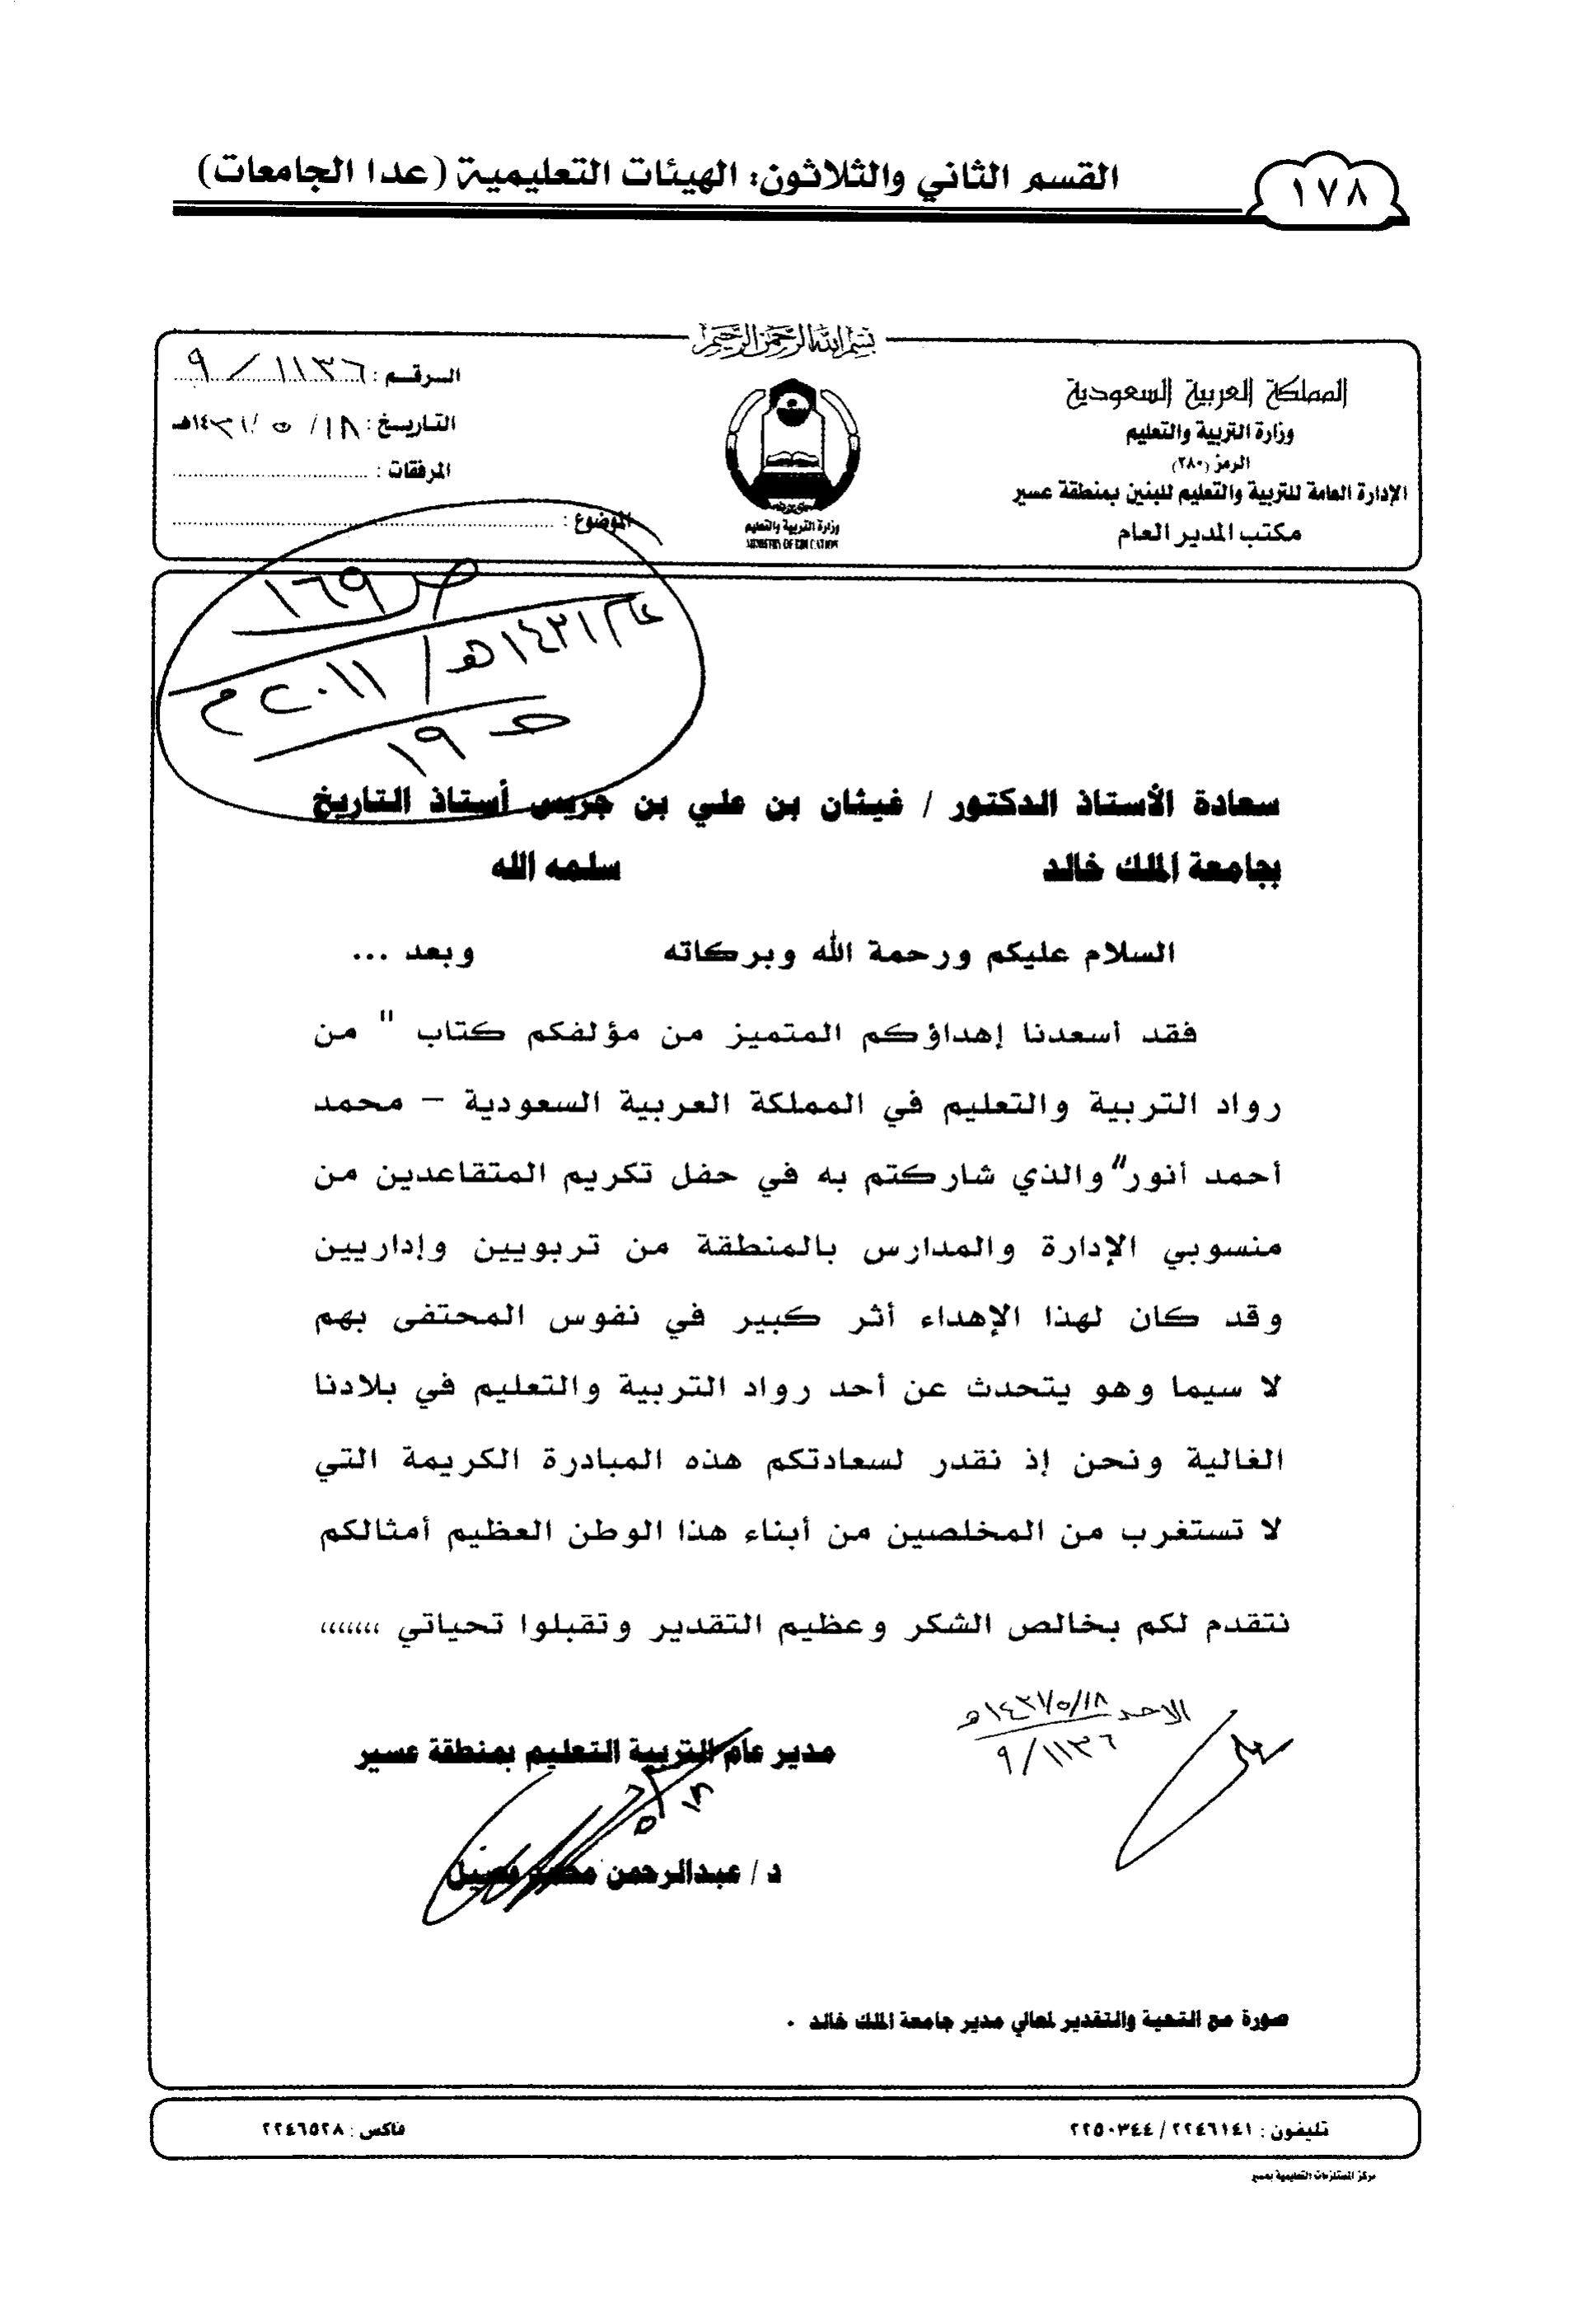 ١٧٨
القسم الثاني والثلاثون: الهيئات التعليمية (عدا الجامعات)
بسم الله الرحمن الرحيم
المملكة العربية السعودية
وزارة التربية والتعليم
الرمز (٢٨٠)
الإدارة العامة للتربية والتعليم للبنين بمنطقة عسير
مكتب المدير العام
وزارة التربية والتعليم
MINISTRY OF EDUCATION
الرقم : ١١٣٦ / ٩
التاريخ : ١٨ / ٥ / ١٤٣١هـ
المرفقات :
الموضوع :
ص ١٦٩
عام ١٤٣١هـ / ٢٠١١م
حـ ١٩
سعادة الأستاذ الدكتور / غيثان بن علي بن جريس أستاذ التاريخ
بجامعة الملك خالد سلمه الله
السلام عليكم ورحمة الله وبركاته وبعد ...
فقد أسعدنا إهداؤكم المتميز من مؤلفكم كتاب " من
رواد التربية والتعليم في المملكة العربية السعودية – محمد
أحمد أنور" والذي شاركتم به في حفل تكريم المتقاعدين من
منسوبي الإدارة والمدارس بالمنطقة من تربويين وإداريين
وقد كان لهذا الإهداء أثر كبير في نفوس المحتفى بهم
لا سيما وهو يتحدث عن أحد رواد التربية والتعليم في بلادنا
الغالية ونحن إذ نقدر لسعادتكم هذه المبادرة الكريمة التي
لا تستغرب من المخلصين من أبناء هذا الوطن العظيم أمثالكم
نتقدم لكم بخالص الشكر وعظيم التقدير وتقبلوا تحياتي ،،،،،،،
الاحد ١٤٣١/٥/١٨هـ
٩/١١٣٦
مدير عام التربية التعليم بمنطقة عسير
١٨
٥
د / عبدالرحمن محمد فصيل
صورة مع التحية والتقدير لمعالي مدير جامعة الملك خالد .
تليفون : ٢٢٤٦١٤١ / ٢٢٥٠٣٤٤ فاكس : ٢٢٤٦٥٢٨
مركز المستلزمات التعليمية بعسير